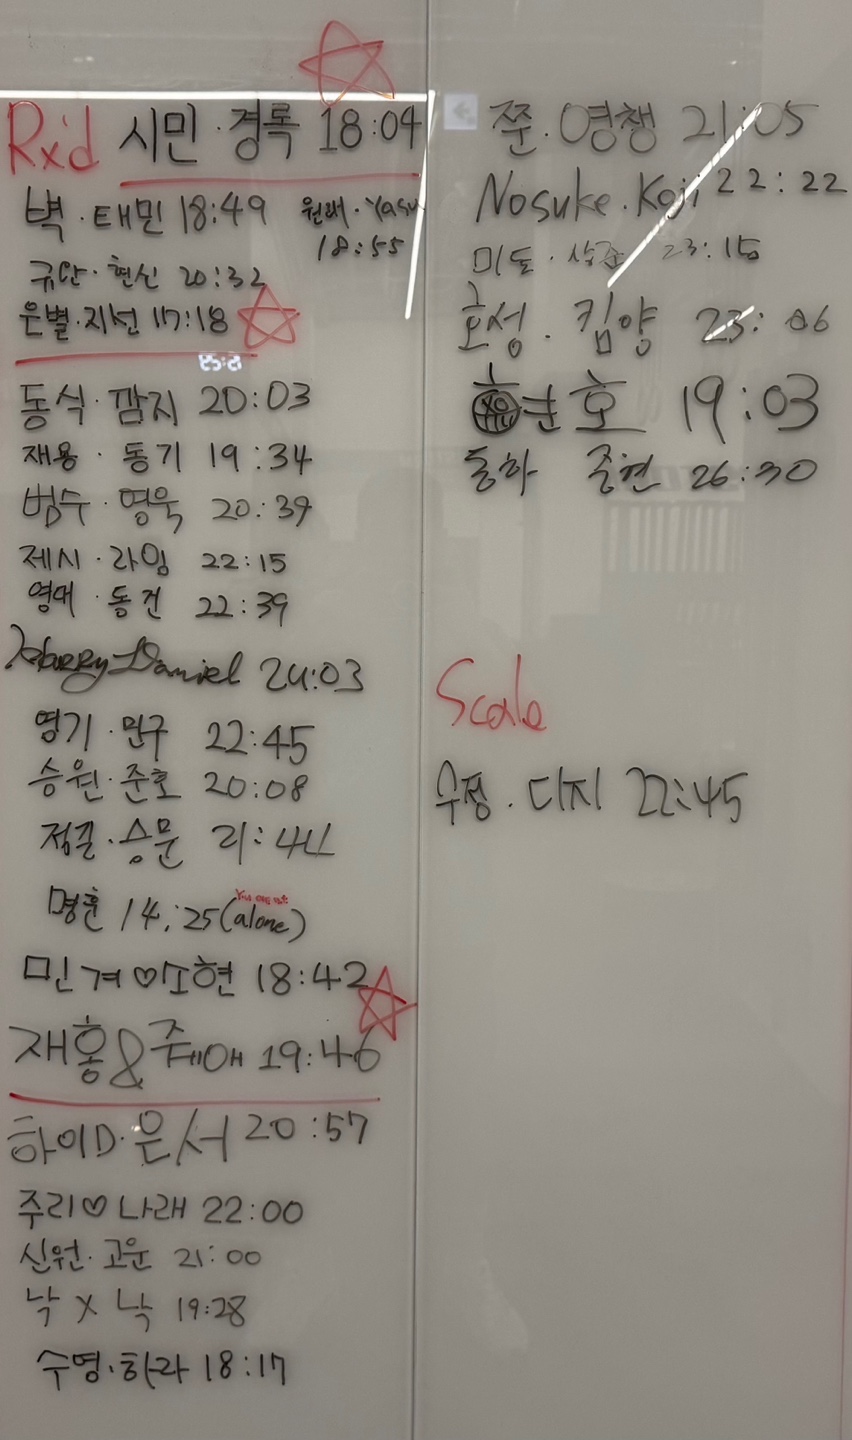 Rx'd 시민·경록 18:04
벽·태민 18:49 원래·Yasu 18:55
규단·현신 20:32
은별·지선 17:18
동식·깜지 20:03
재용·동기 19:34
범수·영욱 20:39
제시·라임 22:15
영대·동건 22:39
Harry Daniel 24:03
영기·민구 22:45
승원·준호 20:08
정길·승문 21:44
명훈 14:25 (alone)
민겨♡소현 18:42
재홍&쥬애 19:46
하이D·은서 20:57
주리♡나래 22:00
신원·고운 21:00
낙 X 낙 19:28
수영·하라 18:17
쭌·영챙 21:05
Nosuke·Koji 22:22
미도· 23:15
호성·킴양 23:06
호 19:03
동하 종현 26:30
Scale
수정·디지 22:45